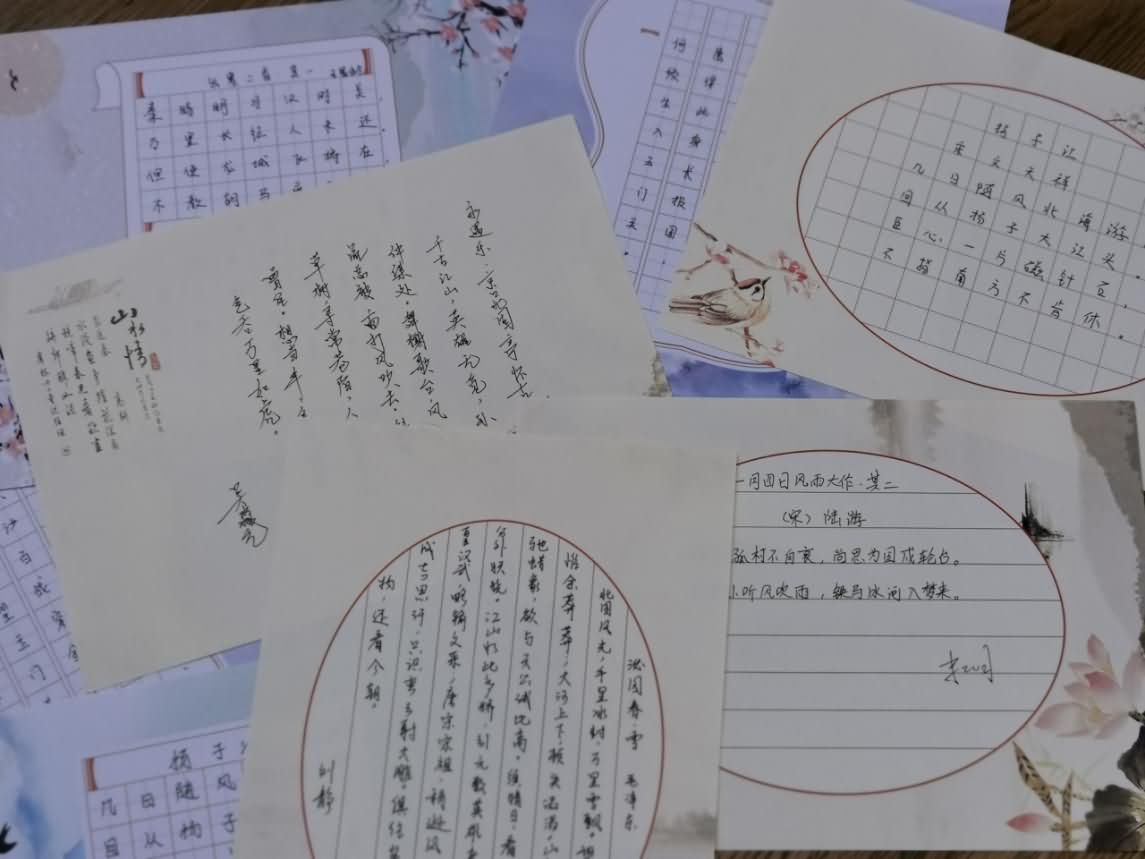 出塞二首 其一 王昌龄
秦时明月汉时关,
万里长征人未还
但使龙城飞将在
不教胡马
愿得此身长报国
何须生入玉门关
扬子江
宋 文天祥
几日随风北海游
回从扬子大江头
臣心一片磁针石,
不指南方不肯休。
永遇乐·京口北固亭怀古
千古江山,英雄无觅,孙
仲谋处。舞榭歌台,风
流总被雨打风吹去。
草树,寻常巷陌,人
曾住。想当年,金
气吞万里如虎。
山水情
沁园春·雪 毛泽东
北国风光,千里冰封,万里雪飘。望
惟余莽莽;大河上下,顿失滔滔。山
驰蜡象,欲与天公试比高。须晴日,看
分外妖娆。江山如此多娇,引无数英雄
皇汉武,略输文采;唐宗宋祖,稍逊风
成吉思汗,只识弯弓射大雕。俱往矣
物,还看今朝。
刘静
一月四日风雨大作·其二
(宋) 陆游
孤村不自哀,尚思为国戍轮台。
听风吹雨,铁马冰河入梦来。
沙百战
望玉门
扬子
几日随风
回从扬子